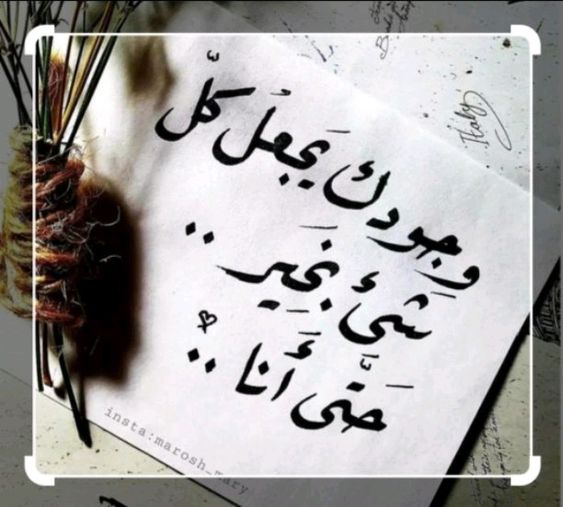 وجودك يجعل كل
شئ بخير ..
حتى أنا ..
insta:marosh_mary
Italy